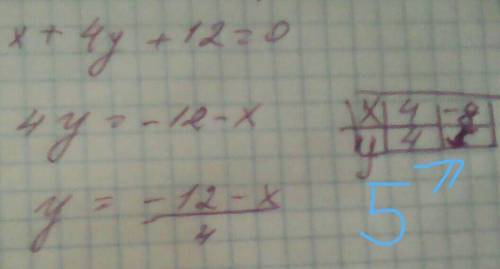 x + 4y + 12 = 0
4y = -12 - x
y = -12 - x / 4
x 4 -8
y 4
5